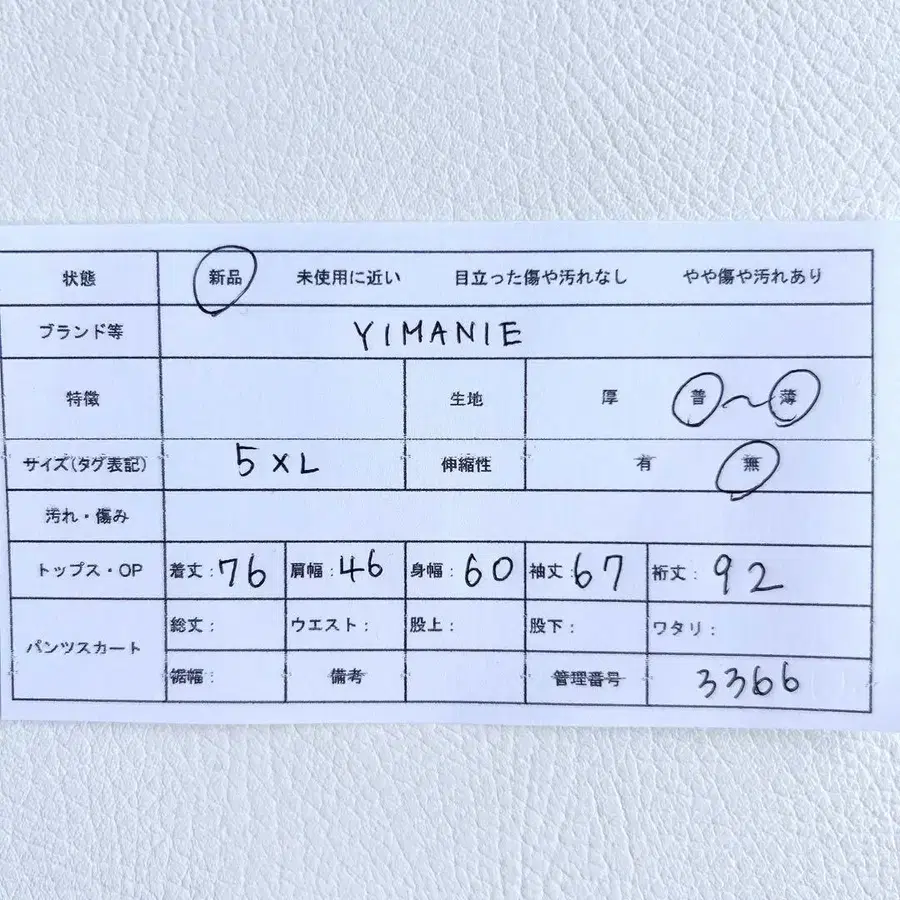 状態 新品 未使用に近い 目立った傷や汚れなし やや傷や汚れあり
ブランド等 YIMANIE
特徴 生地 厚 普〜薄
サイズ(タグ表記) 5XL 伸縮性 有 無
汚れ・傷み
トップス・OP 着丈:76 肩幅:46 身幅:60 袖丈:67 裄丈:92
パンツスカート 総丈: ウエスト: 股上: 股下: ワタリ:
裾幅: 備考 管理番号 3366